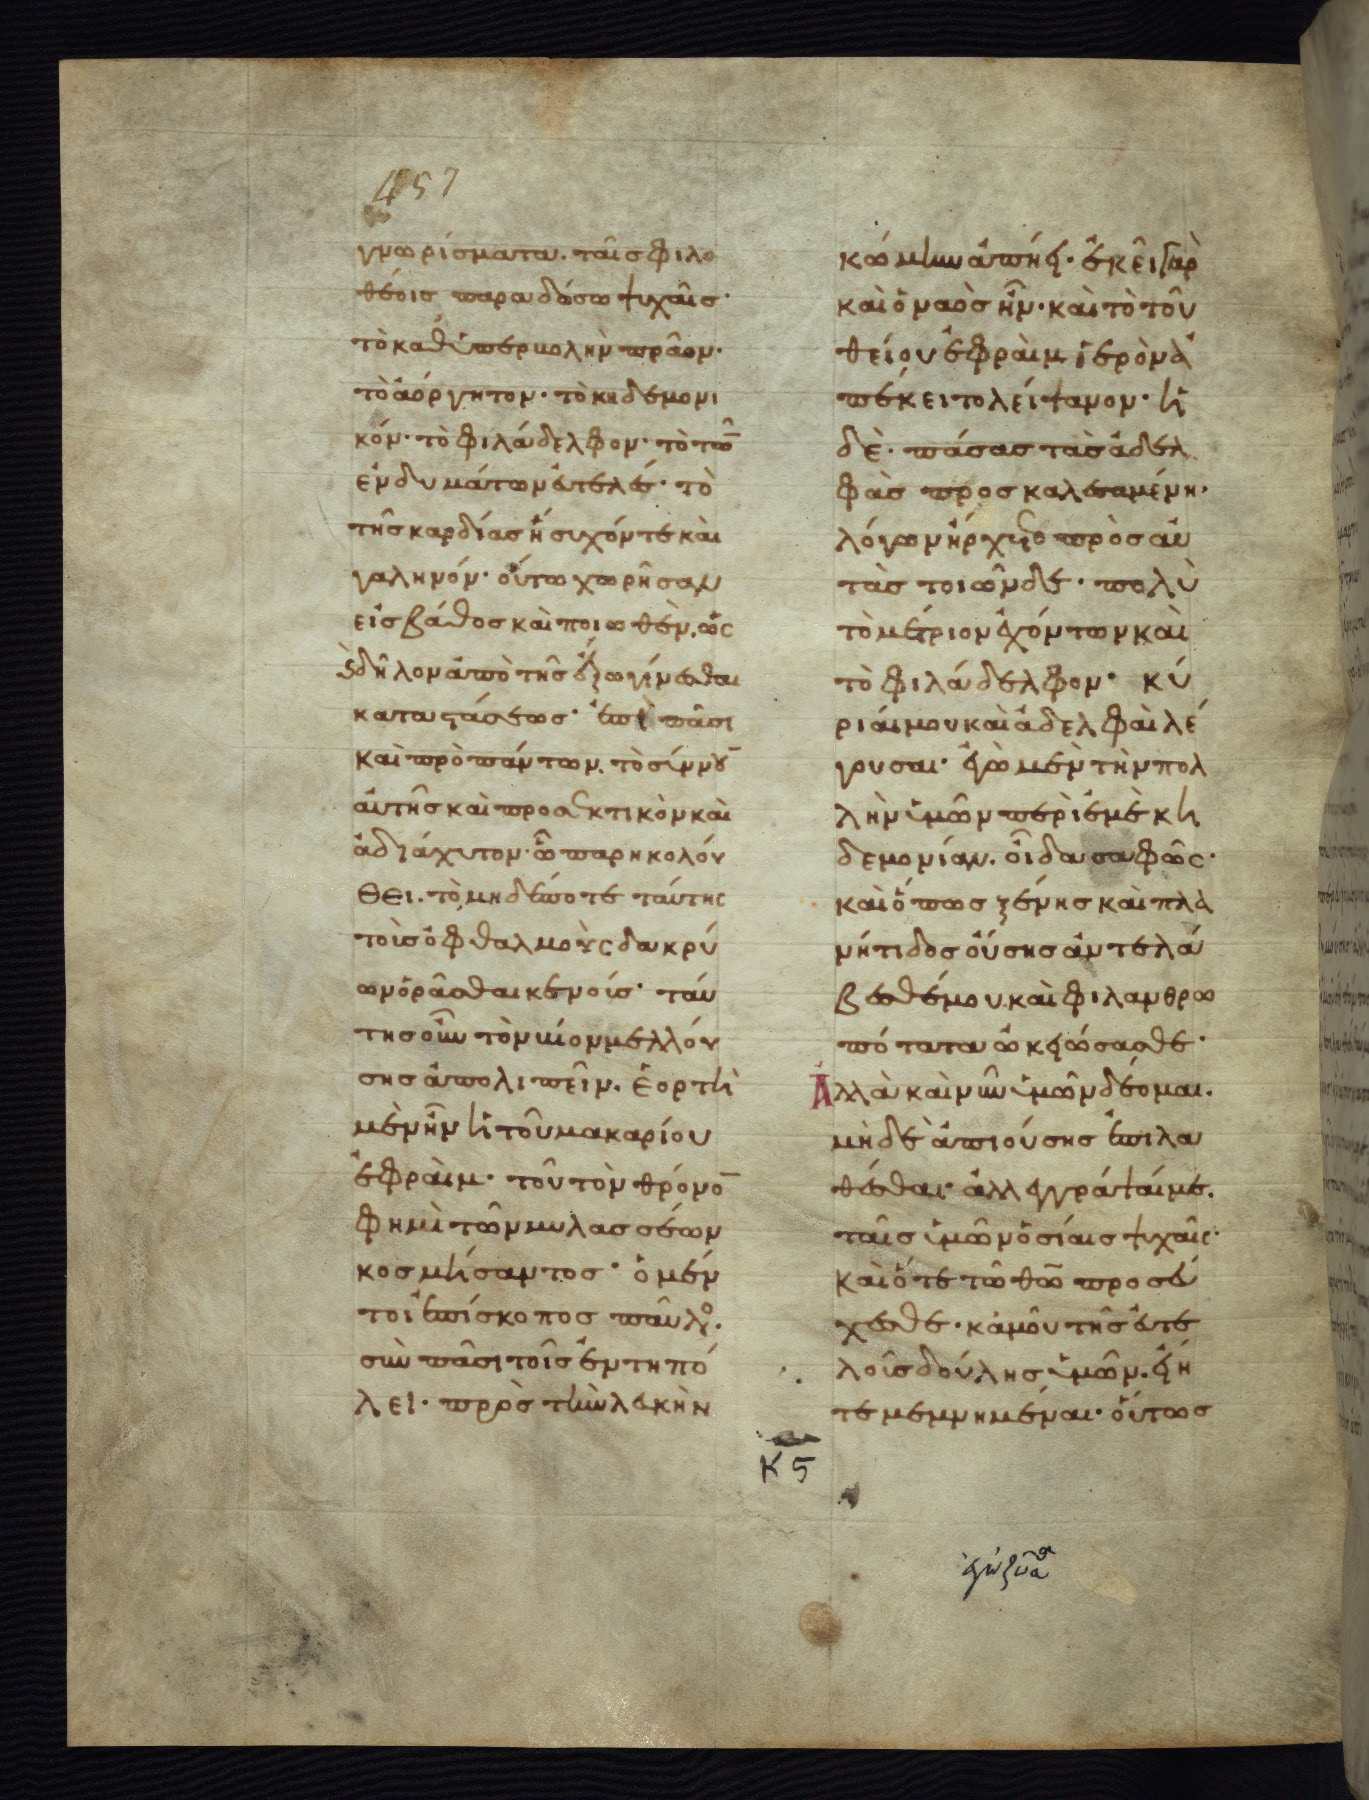 457
γνωρίσματα. ταῖς φιλο
θέοις παραδώσω ψυχαῖς·
τὸ καθ ὑπερβολὴν πρᾶον·
τὸ ἀόργητον· τὸ κηδεμονι
κόν· τὸ φιλάδελφον· τὸ τῶ̅
ἐνδυμάτων εὐτελές· τὸ
τῆς καρδίας ἡσυχόν τε καὶ
γαληνόν· οὕτω χωρῆσαν
εἰς βάθος καὶ ποιωθὲν, ὡς
δῆλον ἀπὸ τῆς ἔξω γίνεσθαι
καταστάσεως· ἐπὶ πᾶσι
καὶ πρὸ πάντων. τὸ σύννου̅
αὐτῆς καὶ προσεκτικὸν καὶ
ἀδιάχυτον· ὧ παρηκολού
θει. τὸ μηδέποτε ταύτης
τοὺς ὀφθαλμοὺς δακρύ
ων ὁρᾶσθαι κενούς· ταύ
της οὖν τὸν βίον μελλού
σης ἀπολιπεῖν. ἑορτὴ
μὲν ἦν ἡ τοῦ μακαρίου
ἐφραὶμ· τοῦ τὸν θρόνο̅
φημὶ τῶν μυλασσέων
κοσμήσαντος· ὁ μέν
τοι ἐπίσκοπος παῦλος.
σὺν πᾶσι τοῖς ἐν τῆ πό
λει· πρὸς τὴν λευκὴν
κώμην ἀπήει· ἐκεῖ γὰρ
καὶ ὁ ναὸς ἦν· καὶ τὸ τοῦ
θείου ἐφραὶμ ἱερὸν ἀ
πέκειτο λείψανον· ἡ
δὲ· πάσας τὰς ἀδελ
φὰς προσκαλεσαμένη·
λόγων ἤρχετο πρὸς αὐ
τὰς τοιῶνδε· πολὺ
τὸ μέτριον ἐχόντων καὶ
τὸ φιλάδελφον· κύ
ριαί μου καὶ ἀδελφαὶ λέ
γουσα· ἐγὼ μὲν τὴν πολ
λὴν ὑμῶν περὶ ἐμὲ κη
δεμονίαν. οἶδα σαφῶς·
καὶ ὅπως ξένης καὶ πλα
νήτιδος οὔσης ἀντελά
βεσθέ μου καὶ φιλανθρω
πότατα ὠκειώσασθε·
Ἀλλὰ καὶ νῦν ὑμῶν δέομαι.
μὴ δὲ ἀπιούσης ἐπιλα
θέσθαι· ἀλλ ἐγγράψαί με.
ταῖς ὑμῶν ὁσίαις ψυχαῖς·
καὶ ὅτε τῶ θ̅ῶ̅ προσεύ
χεσθε· κἀμοῦ τῆς εὐτε
λοῦς δούλης ὑμῶν. εἴη
τε μεμνημέναι· οὕτως
κς